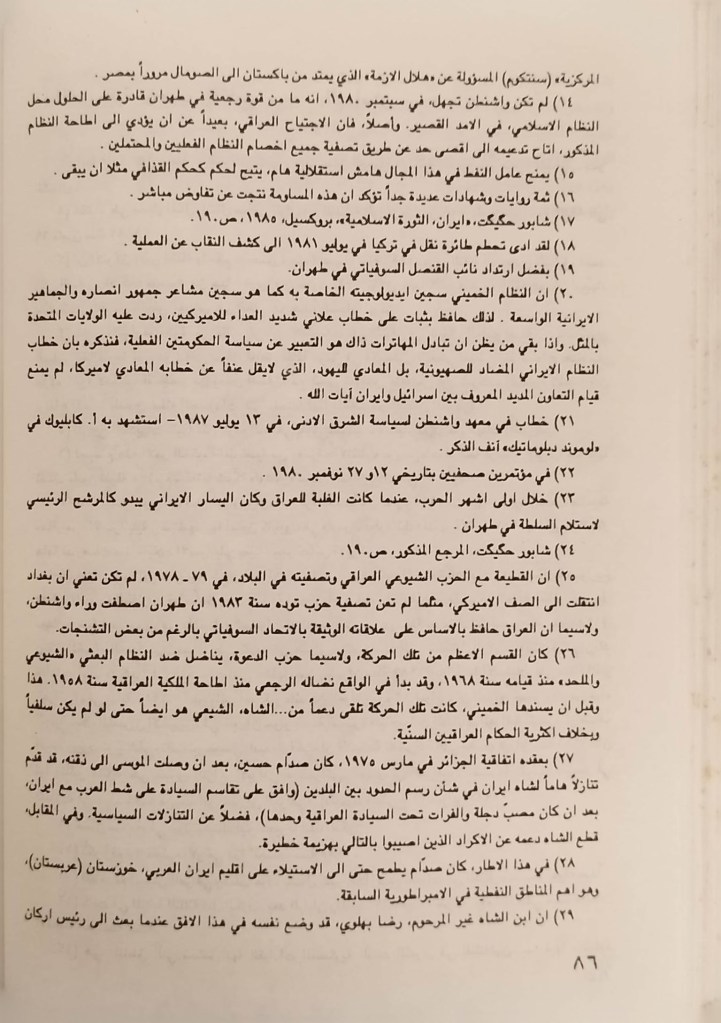 المركزية» (سنتكوم) المسؤولة عن «هلال الازمة» الذي يمتد من باكستان الى الصومال مروراً بمصر .
١٤) لم تكن واشنطن تجهل، في سبتمبر ١٩٨٠، انه ما من قوة رجعية في طهران قادرة على الحلول محل
النظام الاسلامي، في الامد القصير. وأصلاً، فان الاجتياح العراقي، بعيداً عن ان يؤدي الى اطاحة النظام
المذكور، اتاح تدعيمه الى اقصى حد عن طريق تصفية جميع اخصام النظام الفعليين والمحتملين .
١٥) يمنح عامل النفط في هذا المجال هامش استقلالية هام، يتيح لحكم كحكم القذافي مثلا ان يبقى .
١٦) ثمة روايات وشهادات عديدة جداً تؤكد ان هذه المساومة نتجت عن تفاوض مباشر .
١٧) شابور حگيگت، «ايران، الثورة الاسلامية»، بروكسيل، ١٩٨٥، ص١٩٠.
١٨) لقد ادى تحطم طائرة نقل في تركيا في يوليو ١٩٨١ الى كشف النقاب عن العملية .
١٩) بفضل ارتداد نائب القنصل السوفياتي في طهران.
٢٠) ان النظام الخميني سجين ايديولوجيته الخاصة به كما هو سجين مشاعر جمهور انصاره والجماهير
الايرانية الواسعة . لذلك حافظ بثبات على خطاب علاني شديد العداء للاميركيين، ردت عليه الولايات المتحدة
بالمثل. واذا بقي من يظن ان تبادل المهاترات ذاك هو التعبير عن سياسة الحكومتين الفعلية، فنذكره بان خطاب
النظام الايراني المضاد للصهيونية، بل المعادي لليهود، الذي لايقل عنفاً عن خطابه المعادي لاميركا، لم يمنع
قيام التعاون المديد المعروف بين اسرائيل وايران آيات الله .
٢١) خطاب في معهد واشنطن لسياسة الشرق الادنى، في ١٣ يوليو ١٩٨٧– استشهد به أ. كابليوك في
«لوموند دبلوماتيك» آنف الذكر .
٢٢) في مؤتمرين صحفيين بتاريخي ١٢و ٢٧ نوفمبر ١٩٨٠ .
٢٣) خلال اولى اشهر الحرب، عندما كانت الغلبة للعراق وكان اليسار الايراني يبدو كالمرشح الرئيسي
لاستلام السلطة في طهران .
٢٤) شابور حگيگت، المرجع المذكور، ص١٩٠.
٢٥) ان القطيعة مع الحزب الشيوعي العراقي وتصفيته في البلاد، في ٧٩ ـ ١٩٧٨، لم تكن تعني ان بغداد
انتقلت الى الصف الاميركي، مثلما لم تعن تصفية حزب توده سنة ١٩٨٣ ان طهران اصطفت وراء واشنطن،
ولاسيما ان العراق حافظ بالاساس على علاقاته الوثيقة بالاتحاد السوفياتي بالرغم من بعض التشنجات.
٢٦) كان القسم الاعظم من تلك الحركة، ولاسيما حزب الدعوة، يناضل ضد النظام البعثي «الشيوعي
والملحد» منذ قيامه سنة ١٩٦٨، وقد بدأ في الواقع نضاله الرجعي منذ اطاحة الملكية العراقية سنة ١٩٥٨. هذا
وقبل ان يسندها الخميني، كانت تلك الحركة تلقى دعماً من...الشاه، الشيعي هو ايضاً حتى لو لم يكن سلفياً
وبخلاف اكثرية الحكام العراقيين السنّية.
٢٧) بعقده اتفاقية الجزائر في مارس ١٩٧٥، كان صدّام حسين، بعد ان وصلت الموسى الى ذقنه، قد قدّم
تنازلاً هاماً لشاه ايران في شأن رسم الحدود بين البلدين (وافق على تقاسم السيادة على شط العرب مع ايران،
بعد ان كان مصبّ دجلة والفرات تحت السيادة العراقية وحدها)، فضلاً عن التنازلات السياسية. وفي المقابل،
قطع الشاه دعمه عن الاكراد الذين اصيبوا بالتالي بهزيمة خطيرة.
٢٨) في هذا الاطار، كان صدّام يطمح حتى الى الاستيلاء على اقليم ايران العربي، خوزستان (عربستان)،
وهو اهم المناطق النفطية في الامبراطورية السابقة.
٢٩) ان ابن الشاه غير المرحوم، رضا بهلوي، قد وضع نفسه في هذا الافق عندما بعث الى رئيس اركان
٨٦